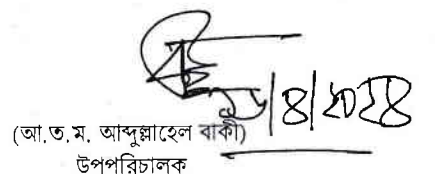 /৪/২০২৪
(আ.ত.ম. আব্দুল্লাহেল বাকী)
উপপরিচালক